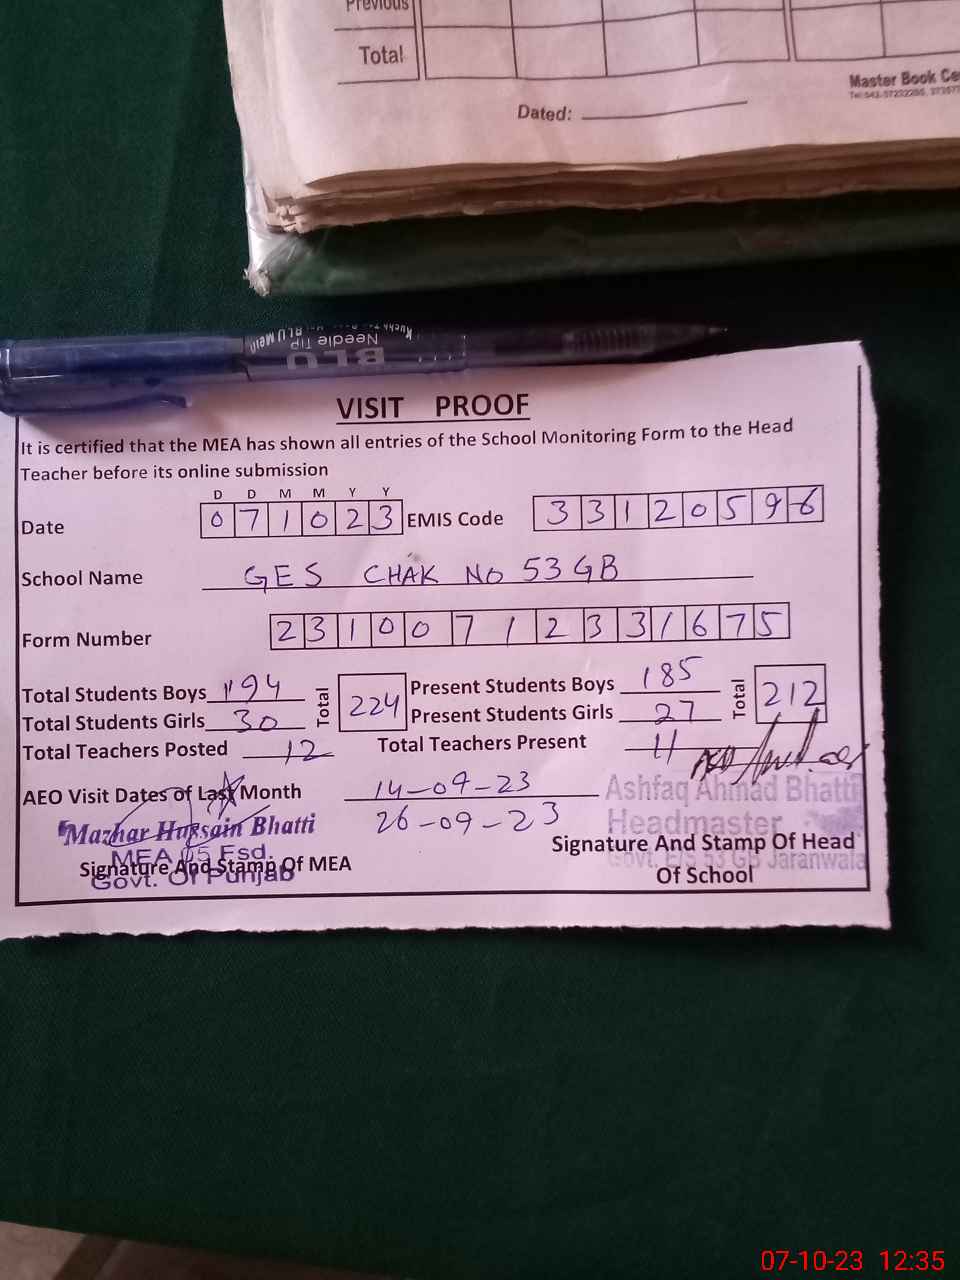 Previous
Total
Master Book
Dated:
Needle Tip
BLU
VISIT PROOF
It is certified that the MEA has shown all entries of the School Monitoring Form to the Head
Teacher before its online submission
D D M M Y Y
Date 0 7 1 0 2 3 EMIS Code 3 3 1 2 0 5 9 6
School Name GES CHAK NO 53 GB
Form Number 2 3 1 0 0 7 1 2 3 3 1 6 7 5
Total Students Boys 194 Total 224 Present Students Boys 185 Total 212
Total Students Girls 30 Present Students Girls 27
Total Teachers Posted 12 Total Teachers Present 11
AEO Visit Dates of Last Month 14-09-23
26-09-23
Ashfaq Ahmad Bhatti
Headmaster
Govt. E/S 53 GB Jaranwala
Mazhar Hussain Bhatti
MEA 05 Fsd.
Govt. Of Punjab
Signature And Stamp Of MEA
Signature And Stamp Of Head
Of School
07-10-23 12:35